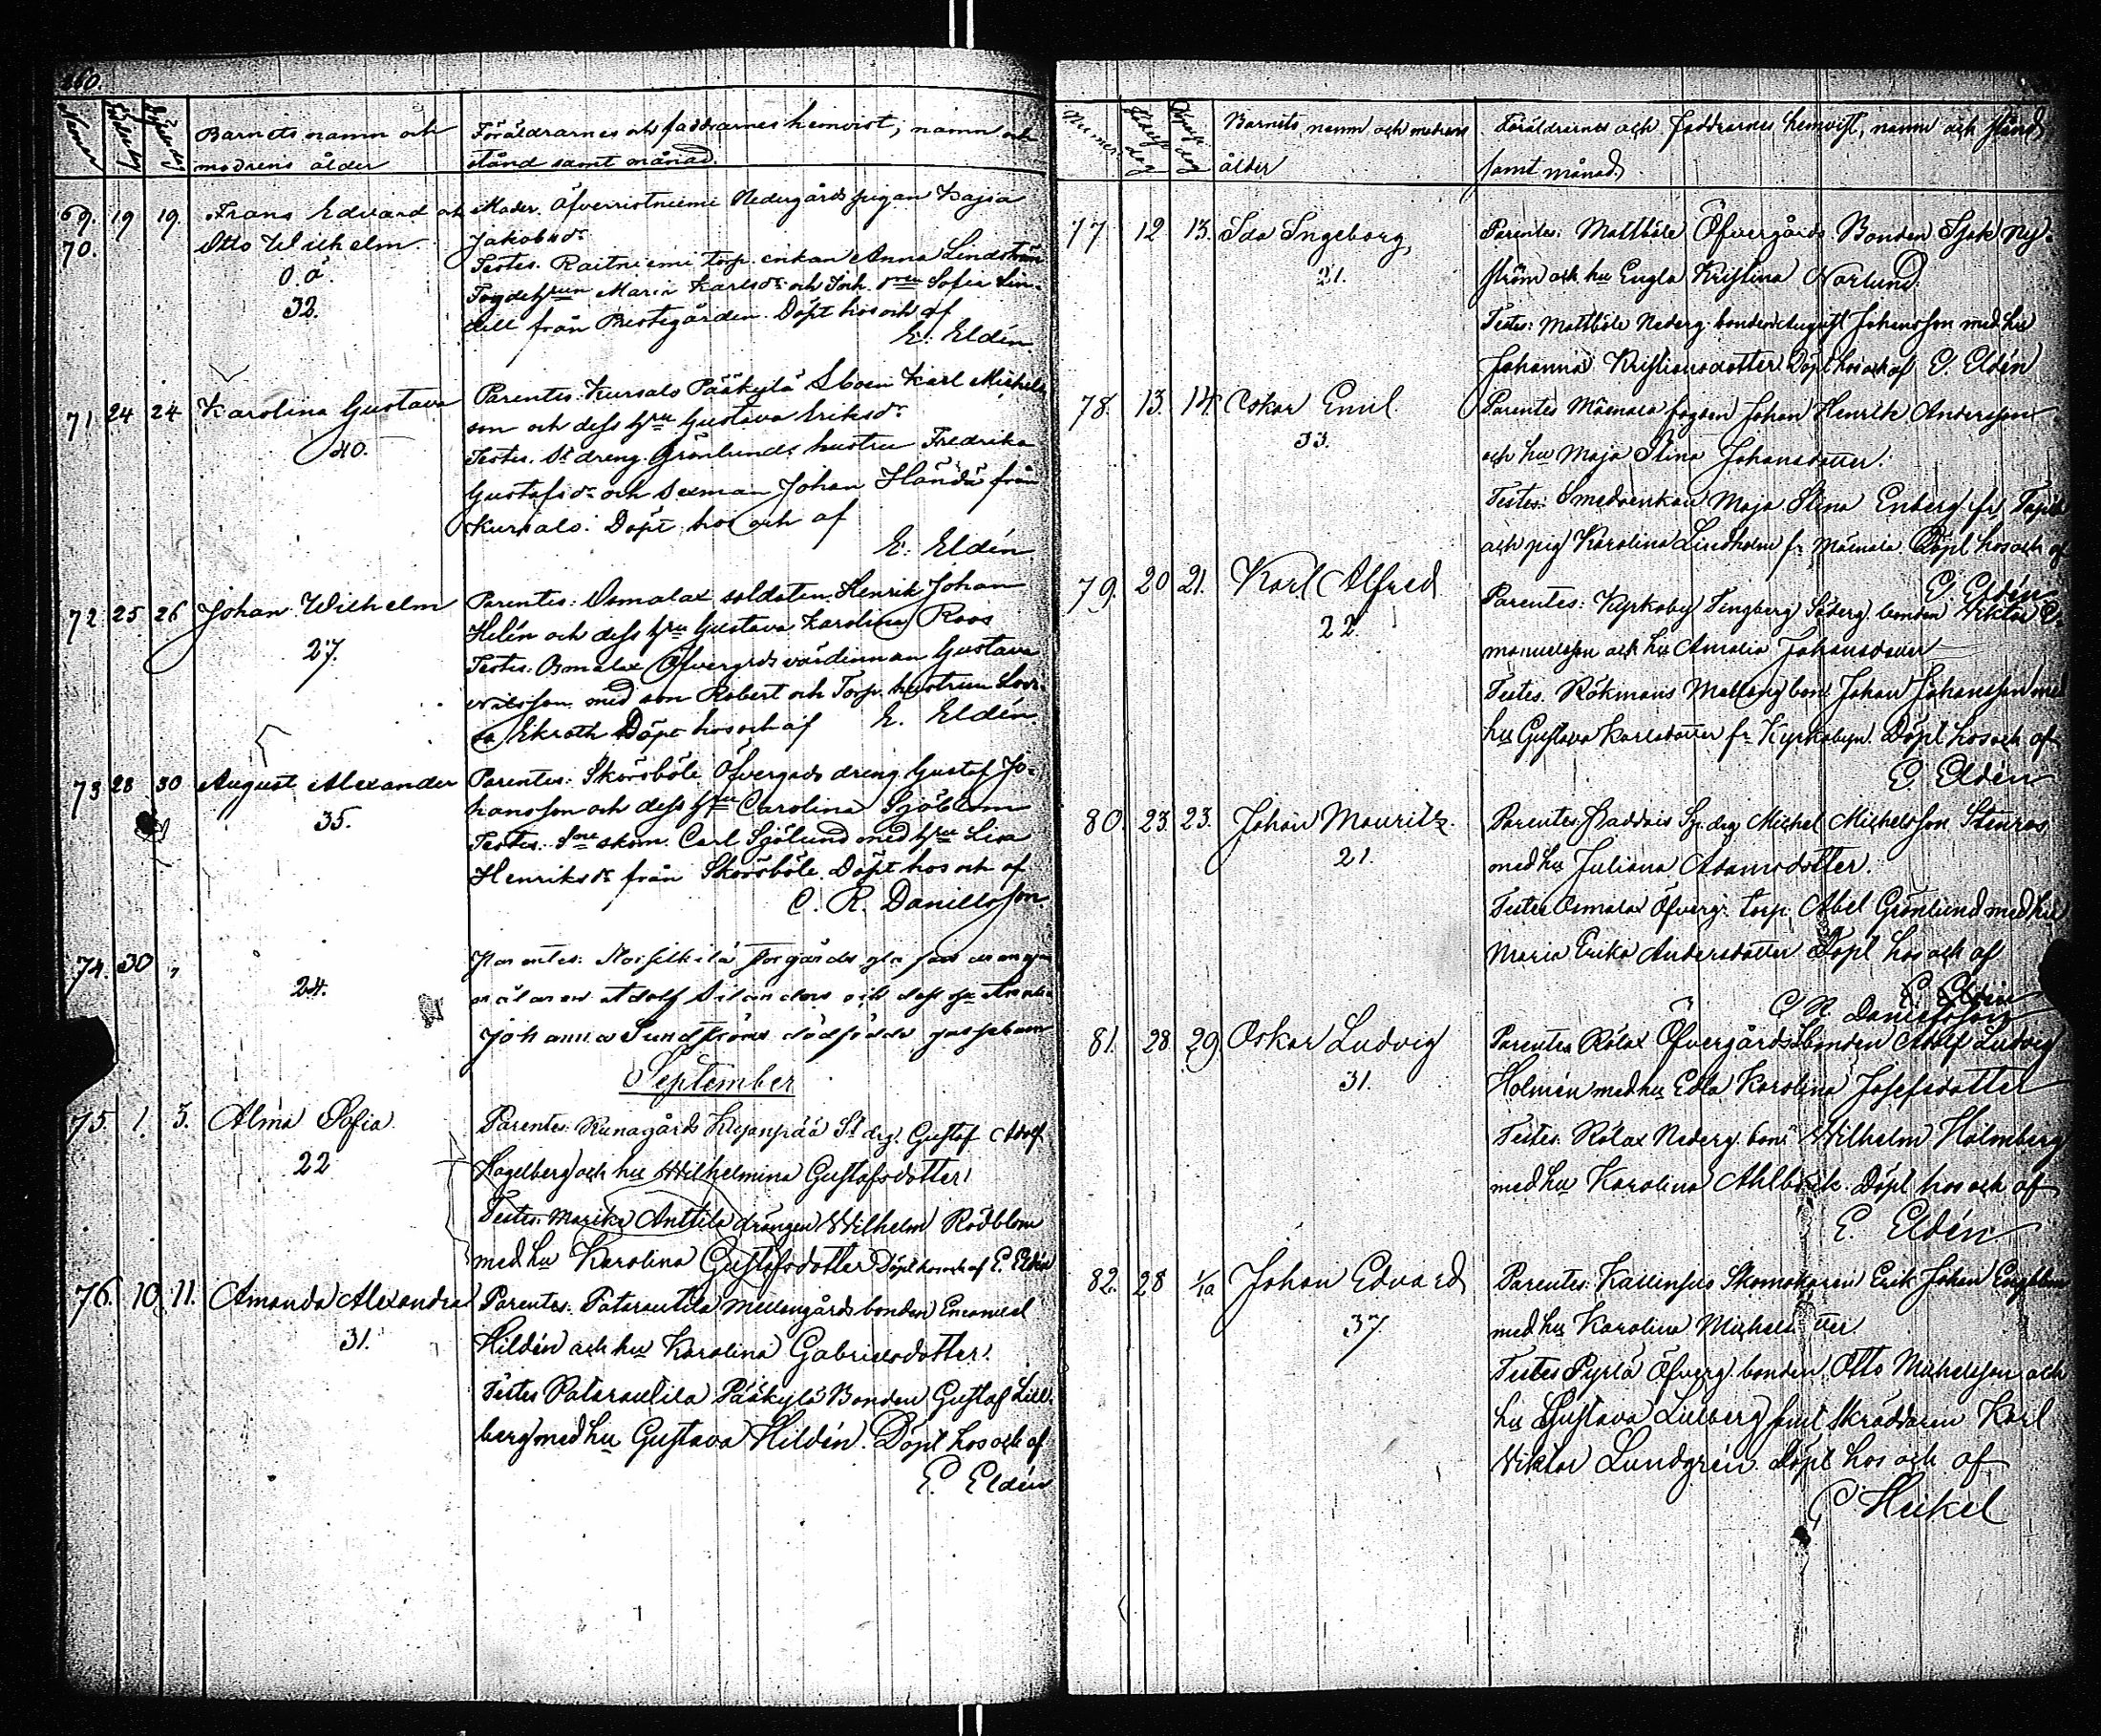 Barnets namn och
modrens ålder
Föräldrarnes och faddrarnes hemvist, namn och
stånd samt månad.
69. 19 19. Frans Edvard och
70. Otto Wilhelm
O.ä.
32.
Moder. Öfverristniemi Nedergårds pigan Kajsa
Jakobsdr
Testes. Raitniemi torp. enkan Anna Lindström
Maria Karlsdr och Sofia Lin-
dell från Prestegården. Döpt hos och af
E. Eldén.
71 24 24 Karolina Gustava
40.
Parentes. Kursalo Pääkylä Karl Michels
son och dess hru Gustava Eriksdr
Testes. St dreng. Grönlunds hustru Fredrika
Gustafsdr och sexman Johan Händä från
Kursalo. Döpt hos och af
E. Eldén
72 25 26 Johan Wilhelm
27.
Parentes: Osmalax soldaten Henrik Johan
Helén och dess hru Gustava Karolina Roos
Testes. Osmalax Öfvergrds värdinnan Gustava
Nilsson med son Robert och Torp. hustrun Lovi-
sa Ekroth Döpt hos och af E. Eldén.
73 28 30 August Alexander
35.
Parentes: Skörsböle Öfvergrds dreng Gustaf Jo-
hansson och dess hru Carolina Sjöblom
Testes. skom. Carl Sjölund med hru Lisa
Henriksdr från Skörsböle. Döpt hos och af
C. R. Danielsson.
74. 30 "
24.
Parentes.
målaren Adolf och dess hu
Johanna Sundström dödfödde gossebarn
September
75. 1. 5. Alma Sofia.
22
Parentes: Runagårds St drg. Gustaf Adolf
Hagelberg och hu Wilhelmina Gustafsdotter.
Testes. Anttila drängen Wilhelm Rödblom
med hu Karolina Gustafsdotter Döpt hos och af E. Eldén
76. 10. 11. Amanda Alexandra
31.
Parentes: Patarautila Mellangårds bonden Emanuel
Hildén och hu Karolina Gabrielsdotter.
Testes Pataraulila Pääkylä Bonden Gustaf Lill-
berg med hu Gustava Hildén. Döpt hos och af
E. Eldén
Barnets namn och modrens
ålder
Föräldrarnes och Faddrarnes hemvist, namn och stånd
samt månad.
77 12 13. Ida Ingeborg,
21.
Parentes: Mattböle Öfvergårds Bonden Isak Ny-
ström och hu Engla Kristina Norlund.
Testes: Mattböle Nederg. bonden August Johansson med hu
Johanna Kristiansdotter Döpt hos och af E. Eldén
78. 13. 14. Oskar Emil
33.
Parentes Mäenala fogden Johan Henrik Andersson
och hu Maja Stina Johansdotter.
Testes: Smedsenkan Maja Stina Enberg fr.
och pig. Karolina Lindholm fr Mäenala. Döpt hos och af
E. Eldén
79. 20 21. Karl Alfred
22.
Parentes: Kyrkoby Tingberg Söderg. bonden Viktor E-
manuelsson och hu Amalia Johansdotter
Testes. Rökmans Mellang. bond. Johan Johansson med
hu Gustava Karlsdotter fr Kyrkobyn. Döpt hos och af
E. Eldén
80. 23. 23. Johan Mauritz
21.
Parentes Faddais drg Michel Michelsson Stenros
med hu Juliana Adamsdotter.
Testes Osmalax Öfverg. torp. Abel Grönlund med hu
Maria Erika Andersdotter Döpt hos och af
E. Eldén
C R Danielsson
81. 28 29 Oskar Ludvig
31.
Parentes Rölax Öfvergårds bonden Adolf Ludvig
Holmén med hu Edla Karolina Josefsdotter
Testes. Rölax Nederg. bond. Wilhelm Holmberg
med hu Karolina Ahlbäck. Döpt hos och af
E. Eldén
82. 28 1/10 Johan Edvard
37.
Parentes. Skomakaren Erik Johan Engblom
med hu Karolina
Testes Pyrlä Öfverg. bonden Otto Michelsson och
hu Gustava Lillberg samt skräddaren Karl
Viktor Lundgrén Döpt hos och af
Heikel